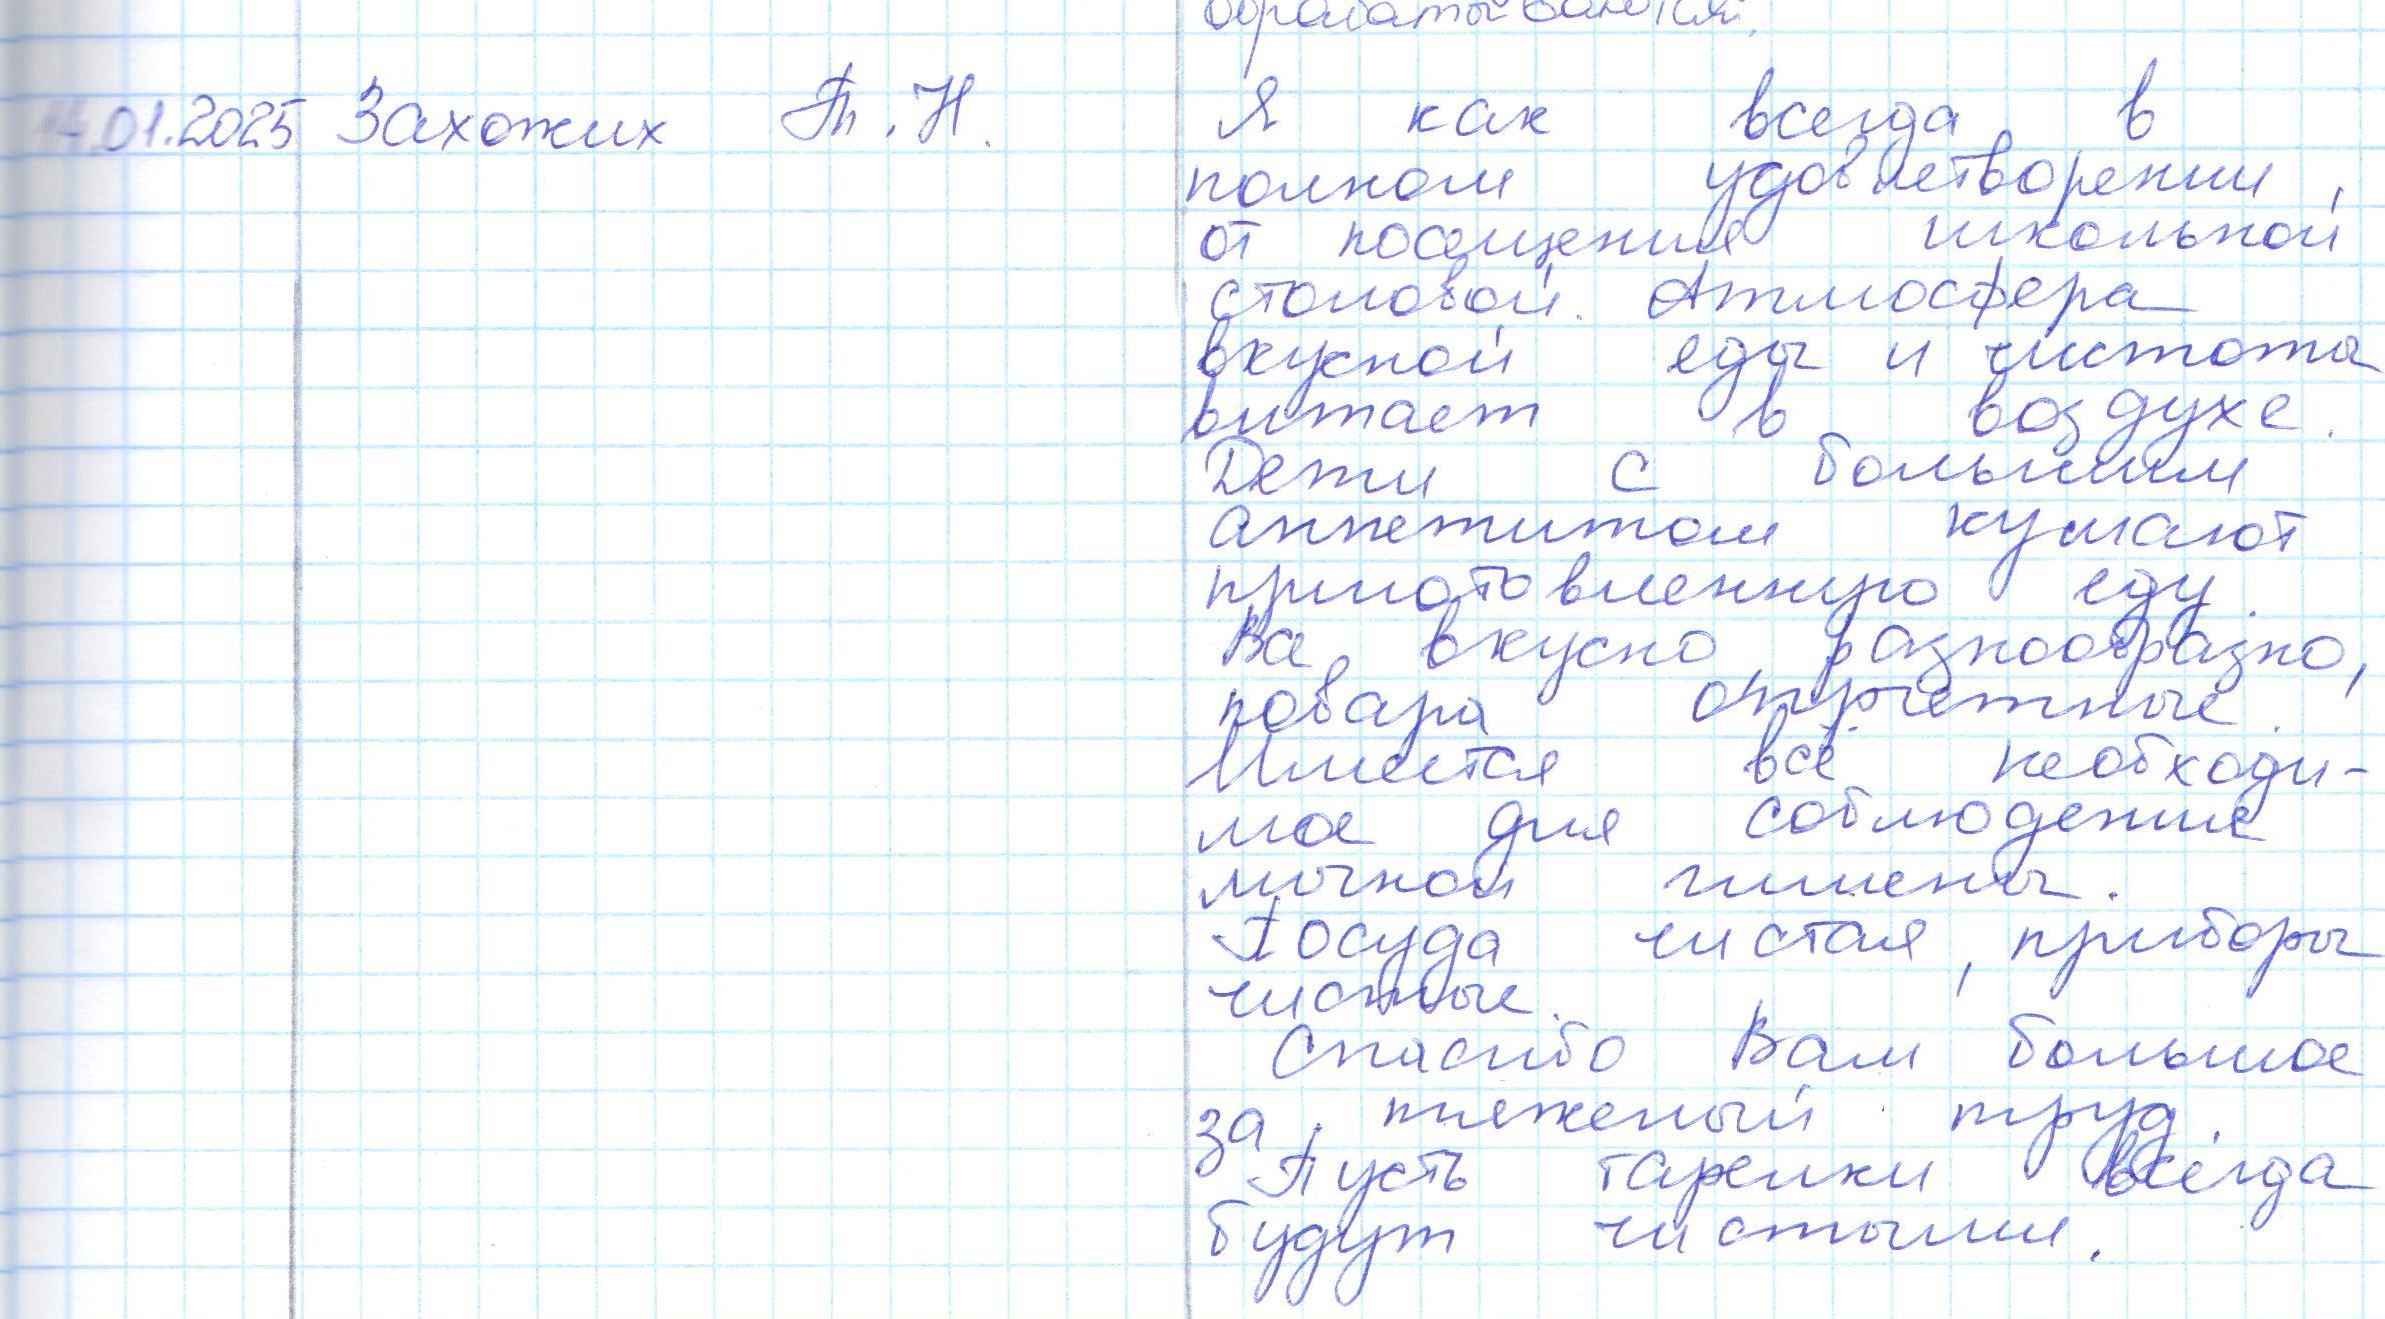 обрабатываются.
14.01.2025 Захожих Т.Н. Я как всегда в
полном удовлетворении,
от посещения школьной
столовой. Атмосфера
вкусной еды и чистоты
витает в воздухе.
Дети с большим
аппетитом кушают
приготовленную еду.
Все вкусно, разнообразно,
повара опрятные.
Имеется всё необходи-
мое для соблюдения
личной гигиены.
Посуда чистая, приборы
чистые.
Спасибо Вам большое
за тяжелый труд.
Пусть тарелки всегда
будут чистыми.